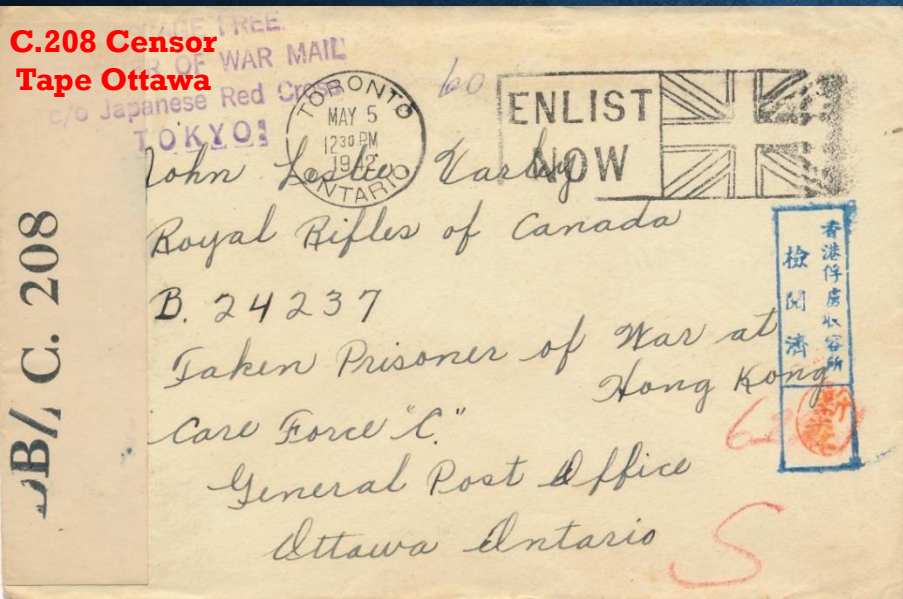 C.208 Censor
Tape Ottawa
FREE
OF WAR MAIL
c/o Japanese Red Cross
TOKYO
TORONTO
MAY 5
12 30 PM
1942
ONTARIO
60
ENLIST
NOW
John Leslie
Royal Rifles of Canada
B. 24237
Taken Prisoner of War at
Hong Kong
Care Force "C."
General Post Office
Ottawa Ontario
C. 208
香港俘虜収容所
檢閲濟
S